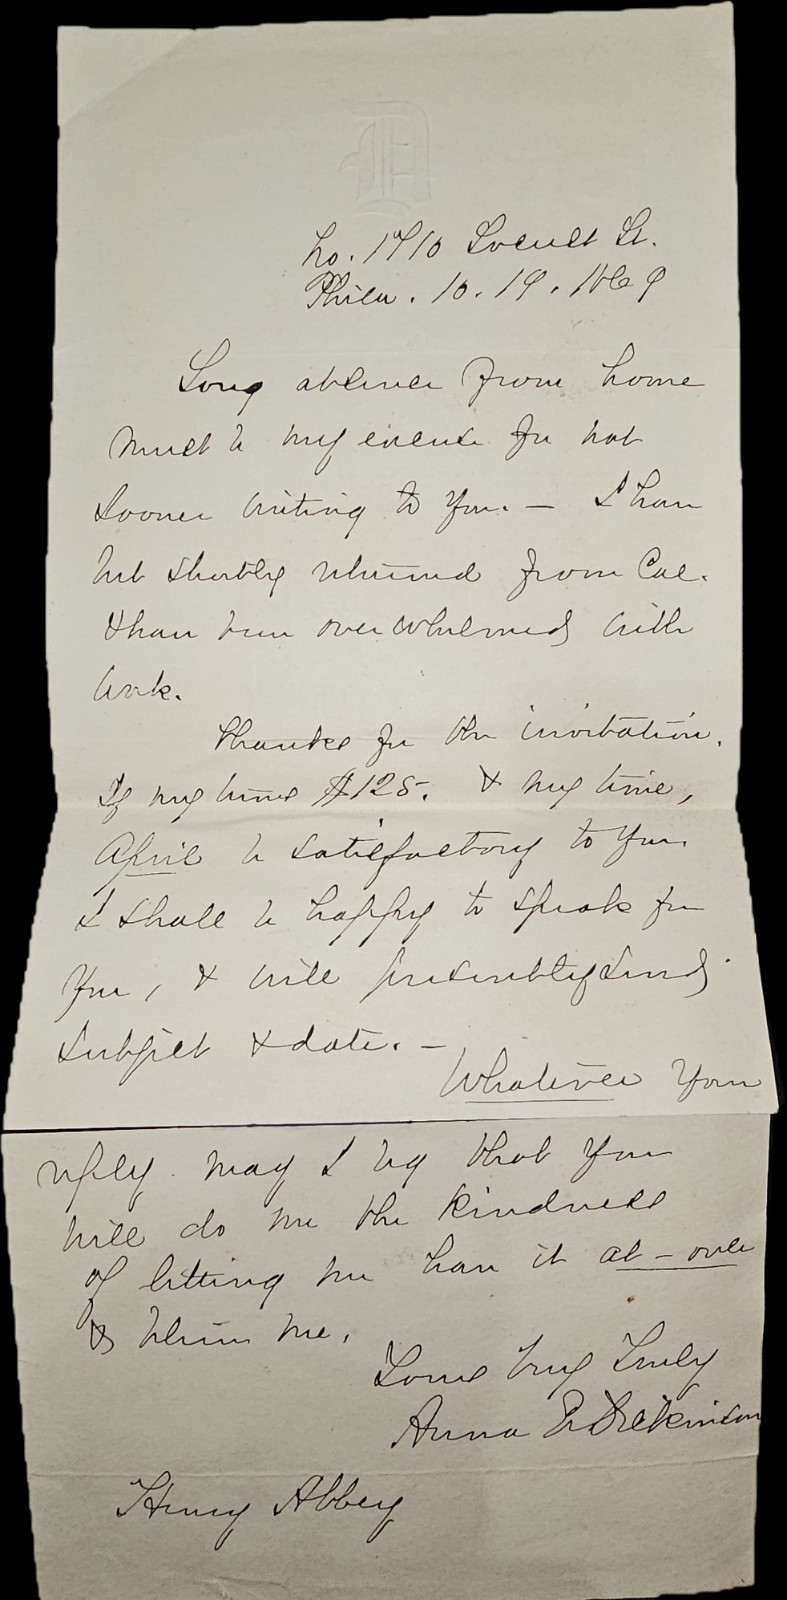 D
No. 1710 Locust St.
Phila. 10. 19. 1869
Long absence from home
must be my excuse for not
sooner writing to you. — I have
but shortly returned from Cal.
& have been overwhelmed with
work.
Thanks for the invitation.
If my terms $125. & my time,
April be satisfactory to you
I shall be happy to speak for
you, & will presently send
subject & date. —
Whatever your
reply may I beg that you
will do me the kindness
of letting me have it at - once
& believe me,
Yours very truly
Anna E Dickinson
Henry Abbey